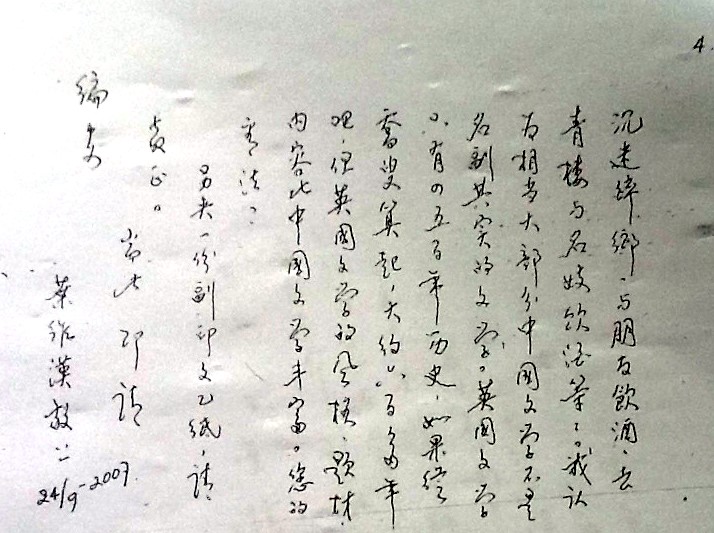 4.
沉迷醉鄉,与朋友飲酒,去
青楼与名妓饮酒等等。我认
为相当大部分中國文学不是
名副其实的文学。英國文学
只有四五百年历史,如果從
喬叟算起,大约六百多年
吧,但英國文学的風格、題材、
内容比中國文学丰富。您的
看法?
另夹一份副印文乙紙,請
正。 耑此 即請
編安
漢 敬上
24/9-2007